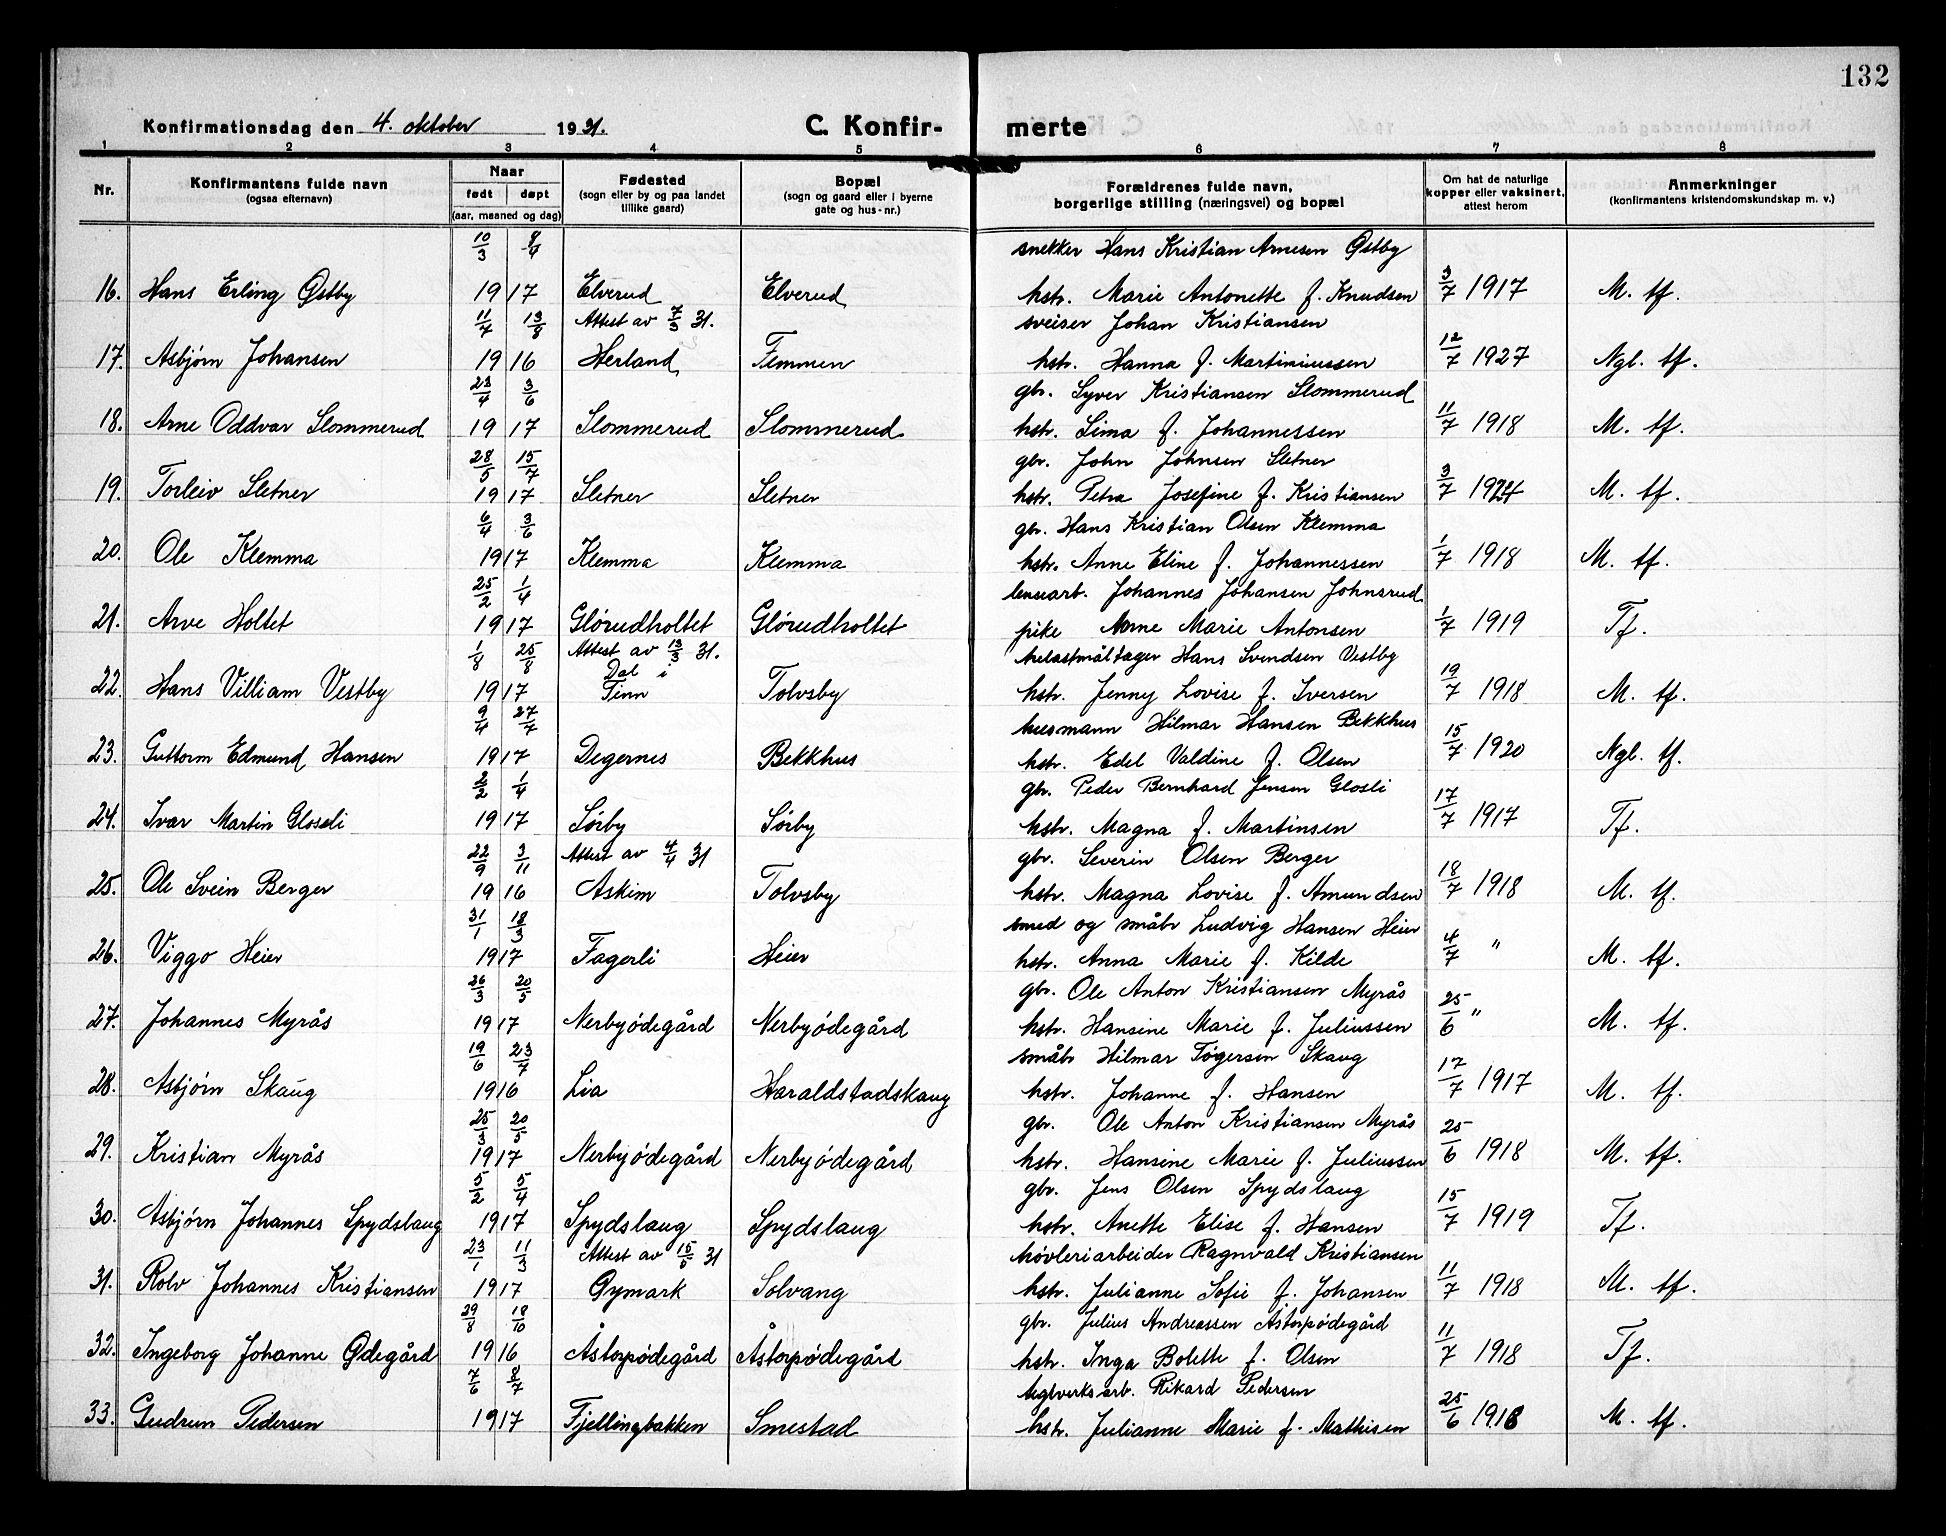 132
Konfirmationsdag den 4. oktober 1931. C. Konfir- merte
1 2 3 4 5 6 7 8
Nr. Konfirmantens fulde navn (ogsaa efternavn) Naar født døpt (aar, maaned og dag) Fødested (sogn eller by og paa landet tillike gaard) Bopæl (sogn og gaard eller i byerne gate og hus-nr.) Forældrenes fulde navn, borgerlige stilling (næringsvei) og bopæl Om hat de naturlige kopper eller vaksinert, attest herom Anmerkninger (konfirmantens kristendomskundskap m. v.)
10/3 8/4 snekker Hans Kristian Arnesen Østby
16. Hans Erling Østby 1917 Elverud Elverud hstr. Marie Antonette f. Knudsen 3/7 1917 M. tf.
11/4 13/8 Attest av 7/3 31. sveiser Johan Kristiansen
17. Asbjørn Johansen 1916 Herland Temmen hstr. Hanna f. Martiniussen 12/7 1927 Ngl. tf.
23/4 3/6 gbr. Syver Kristiansen Slommerud
18. Arne Oddvar Slommerud 1917 Slommerud Slommerud hstr. Lima f. Johannessen 11/7 1918 M. tf.
28/5 15/7 gbr. John Johnsen Sletner
19. Torleiv Sletner 1917 Sletner Sletner hstr. Petra Josefine f. Kristiansen 3/7 1924 M. tf.
6/4 3/6 gbr. Hans Kristian Olsen Klemma
20. Ole Klemma 1917 Klemma Klemma hstr. Anne Eline f. Johannessen 1/7 1918 M. tf.
25/2 1/4 lensearb. Johannes Johansen Johnsrud
21. Arve Holtet 1917 Glørudholtet Glørudholtet pike Anne Marie Antonsen 1/7 1919 Tf.
1/8 25/8 Attest av 13/3 31. melastmåltager Hans Svendsen Vestby
22. Hans Villiam Vestby 1917 Dal i Tinn Tolvsby hstr. Jenny Lovise f. Iversen 19/7 1918 M. tf.
9/4 27/4 husmann Hilmar Hansen Bekkhus
23. Guttorm Edmund Hansen 1917 Degernes Bekkhus hstr. Edel Valdine f. Olsen 15/7 1920 Ngl. tf.
2/2 1/4 gbr. Peder Bernhard Jensen Glosli
24. Ivar Martin Glosli 1917 Sørby Sørby hstr. Magna f. Martinsen 17/7 1917 Tf.
22/9 3/11 Attest av 4/4 31 gbr. Severin Olsen Berger
25. Ole Svein Berger 1916 Askim Tolvsby hstr. Magna Lovise f. Amundsen 18/7 1918 M. tf.
31/1 18/3 smed og småbr Ludvig Hansen Heier
26. Viggo Heier 1917 Fagerli Heier hstr. Anna Marie f. Kilde 4/7 " M. tf.
26/3 20/5 gbr. Ole Anton Kristiansen Myrås
27. Johannes Myrås 1917 Nerbyødegård Nerbyødegård hstr. Hansine Marie f. Juliussen 25/6 " M. tf.
19/6 23/7 småbr Hilmar Tøgersen Skaug
28. Asbjørn Skaug 1916 Lia Haraldstadskaug hstr. Johanne f. Hansen 17/7 1917 M. tf.
25/3 20/5 gbr. Ole Anton Kristiansen Myrås
29. Kristian Myrås 1917 Nerbyødegård Nerbyødegård hstr. Hansine Marie f. Juliussen 25/6 1918 M. tf.
5/2 5/4 gbr. Jens Olsen Spydslaug
30. Asbjørn Johannes Spydslaug 1917 Spydslaug Spydslaug hstr. Anette Elise f. Hansen 15/7 1919 Tf.
23/1 11/3 Attest av 15/5 31 høvleriarbeider Ragnvald Kristiansen
31. Rolv Johannes Kristiansen 1917 Gymark Solvang hstr. Julianne Sofie f. Johansen 11/7 1918 M. tf.
29/8 18/10 gbr. Julius Andreassen Åstorpødegård
32. Ingeborg Johanne Ødegård 1916 Åstorpødegård Åstorpødegård hstr. Inga Bolette f. Olsen 11/7 1918 Tf.
7/6 8/7 teglverksarb. Rikard Pedersen
33. Gudrun Pedersen 1917 Fjellingbakken Smestad hstr. Julianne Marie f. Mathisen 25/6 1918 M. tf.